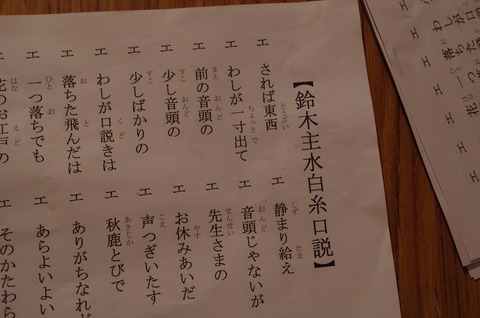 【鈴木主水白糸口説】
エ されば東西 エ 静まり給え
エ わしが一寸出て エ 音頭じゃないが
エ 前の音頭の エ 先生さまの
エ 少し音頭の エ お休みあいだ
エ 少しばかりの エ 声つぎいたす
エ わしが口説きは エ 秋鹿とびで
エ 落ちた飛んだは エ ありがちなれど
エ 一つ落ちでも エ あらよいよい
エ 花のお江戸の エ そのかたわら
エ わしが口説
エ 落ちた飛
エ 一つ
エ 花